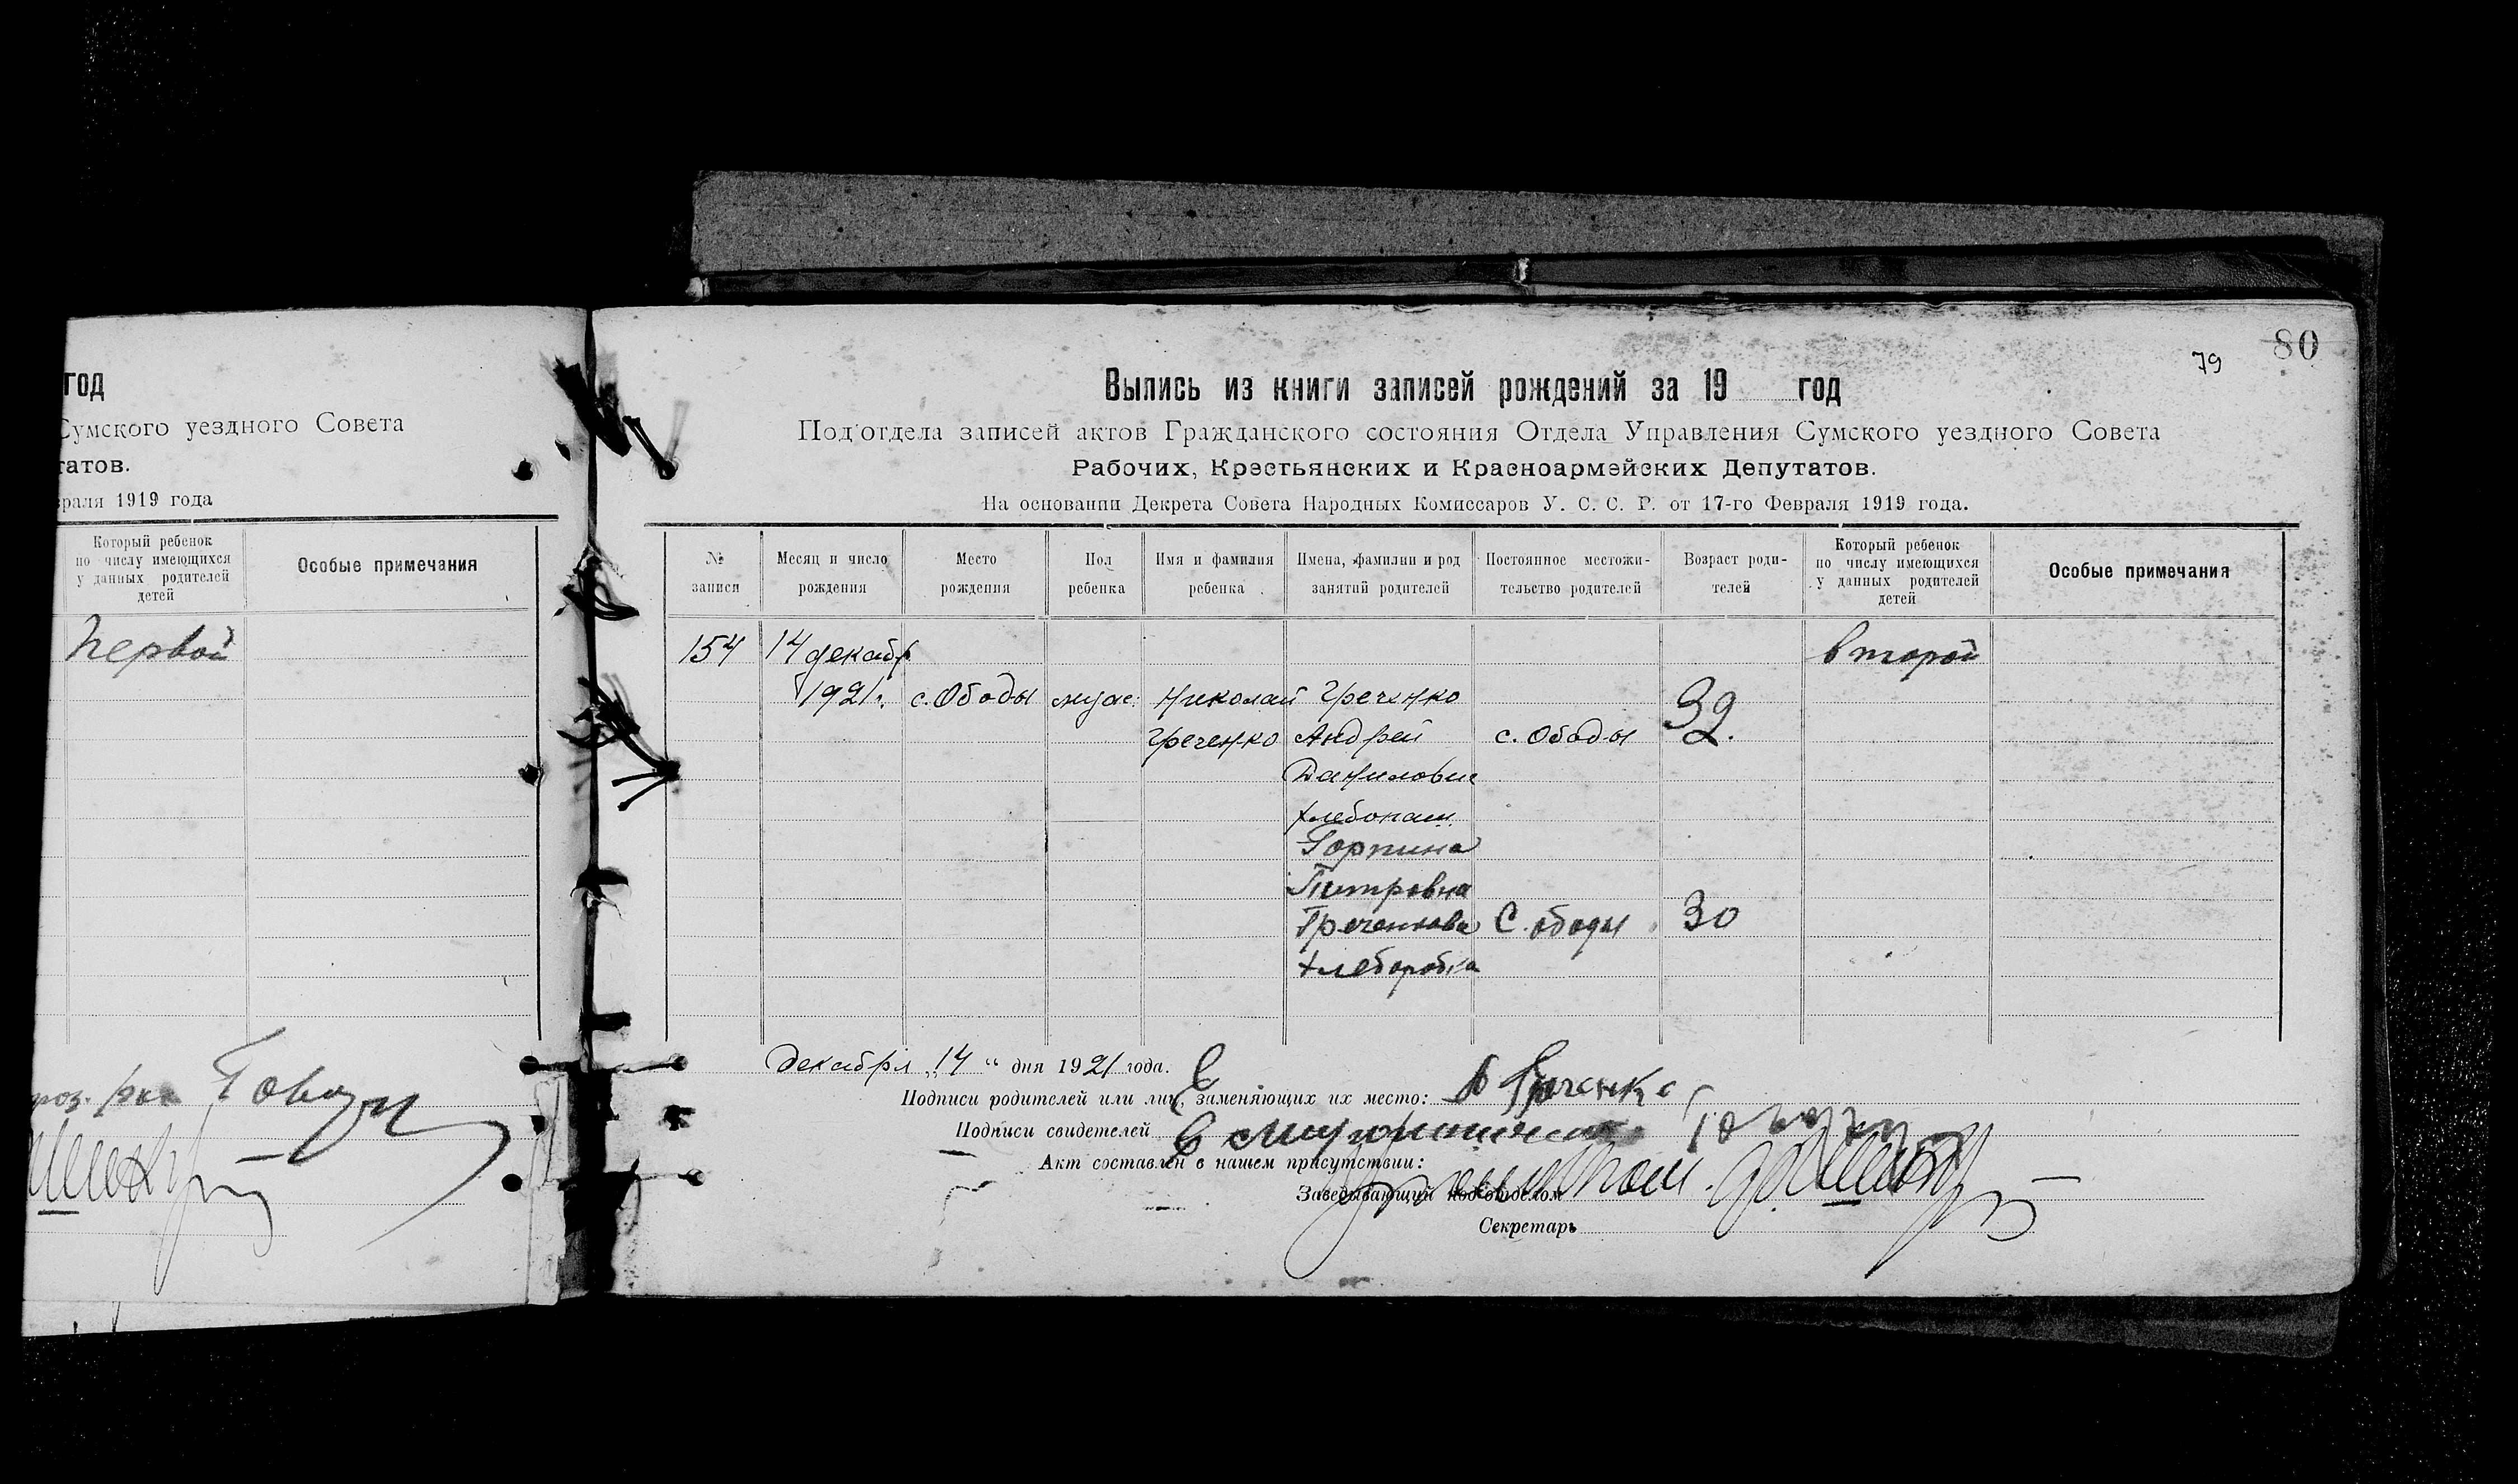 год
Сумского уездного Совета
татов.
враля 1919 года
Который ребенок
по числу имеющихся
у данных родителей
детей
Особые примечания
первой
80
79
Выпись из книги записей рождений за 19 год
Под'отдела записей актов Гражданского состояния Отдела Управления Сумского уездного Совета
Рабочих, Крестьянских и Красноармейских Депутатов.
На основании Декрета Совета Народных Комиссаров У. С. С. Р. от 17-го Февраля 1919 года.
№ записи
Месяц и число рождения
Место рождения
Пол ребенка
Имя и фамилия ребенка
Имена, фамилии и род занятий родителей
Постоянное местожительство родителей
Возраст родителей
Который ребенок по числу имеющихся у данных родителей детей
Особые примечания
154 14 декабр второй
1921г. с. Ободы муж. Николай Греченко 32.
Греченко Андрей с. Ободы
Данилович
хлебопаш.
Горпина
Питровна
Греченкова С. ободы 30
хлеборобка
декабря „14“ дня 1921 года.
Подписи родителей или лиц, заменяющих их место: Греченко
Подписи свидетелей
Акт составлен в нашем присутствии:
Заведывающий подотделом
Секретарь